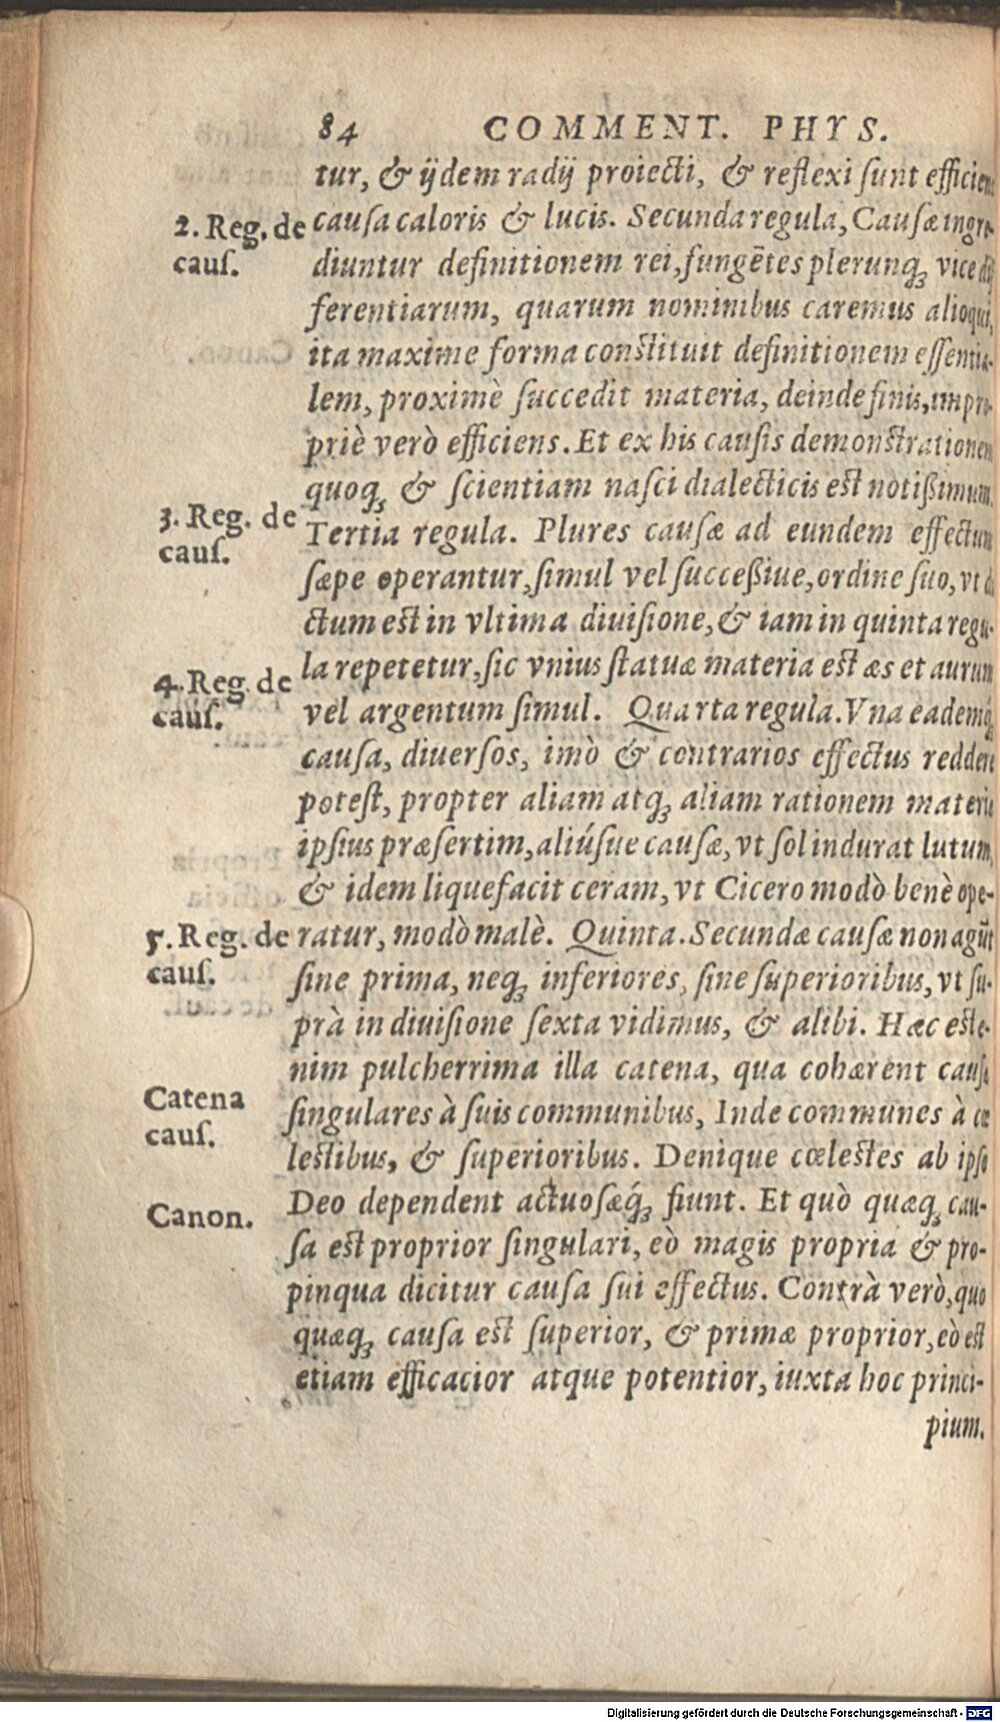 84 COMMENT. PHYS.
tur, & ijdem radij proiecti, & reflexi sunt efficien
2. Reg. de
caus.
causa caloris & lucis. Secunda regula, Causæ ingre-
diuntur definitionem rei, fungētes plerunq; vice dif
ferentiarum, quarum nominibus caremus alioqui,
ita maxime forma constituit definitionem essentia-
lem, proximè succedit materia, deinde finis, impro-
priè verò efficiens. Et ex his causis demonstrationem
quoq; & scientiam nasci dialecticis est notißimum.
3. Reg. de
caus.
Tertia regula. Plures causæ ad eundem effectum
sæpe operantur, simul vel succeßiue, ordine suo, vt di
ctum est in vltima diuisione, & iam in quinta regu-
la repetetur, sic vnius statuæ materia est æs et aurum
4. Reg. de
caus.
vel argentum simul. Quarta regula. Vna eademq;
causa, diuersos, imò & contrarios effectus reddere
potest, propter aliam atq; aliam rationem materiæ
ipsius præsertim, aliúsue causæ, vt sol indurat lutum,
& idem liquefacit ceram, vt Cicero modò benè ope-
5. Reg. de
caus.
ratur, modò malè. Quinta. Secundæ causæ non agūt
sine prima, neq; inferiores, sine superioribus, vt su-
prà in diuisione sexta vidimus, & alibi. Hæc est e-
nim pulcherrima illa catena, qua cohærent causæ
Catena
caus.
singulares à suis communibus, Inde communes à cœ
lestibus, & superioribus. Denique cœlestes ab ipso
Canon.
Deo dependent actuosæq́; fiunt. Et quò quæq; cau-
sa est proprior singulari, eò magis propria & pro-
pinqua dicitur causa sui effectus. Contrà verò, quo
quæq; causa est superior, & primæ proprior, eò est
etiam efficacior atque potentior, iuxta hoc princi-
pium.
Digitalisierung gefördert durch die Deutsche Forschungsgemeinschaft - DFG